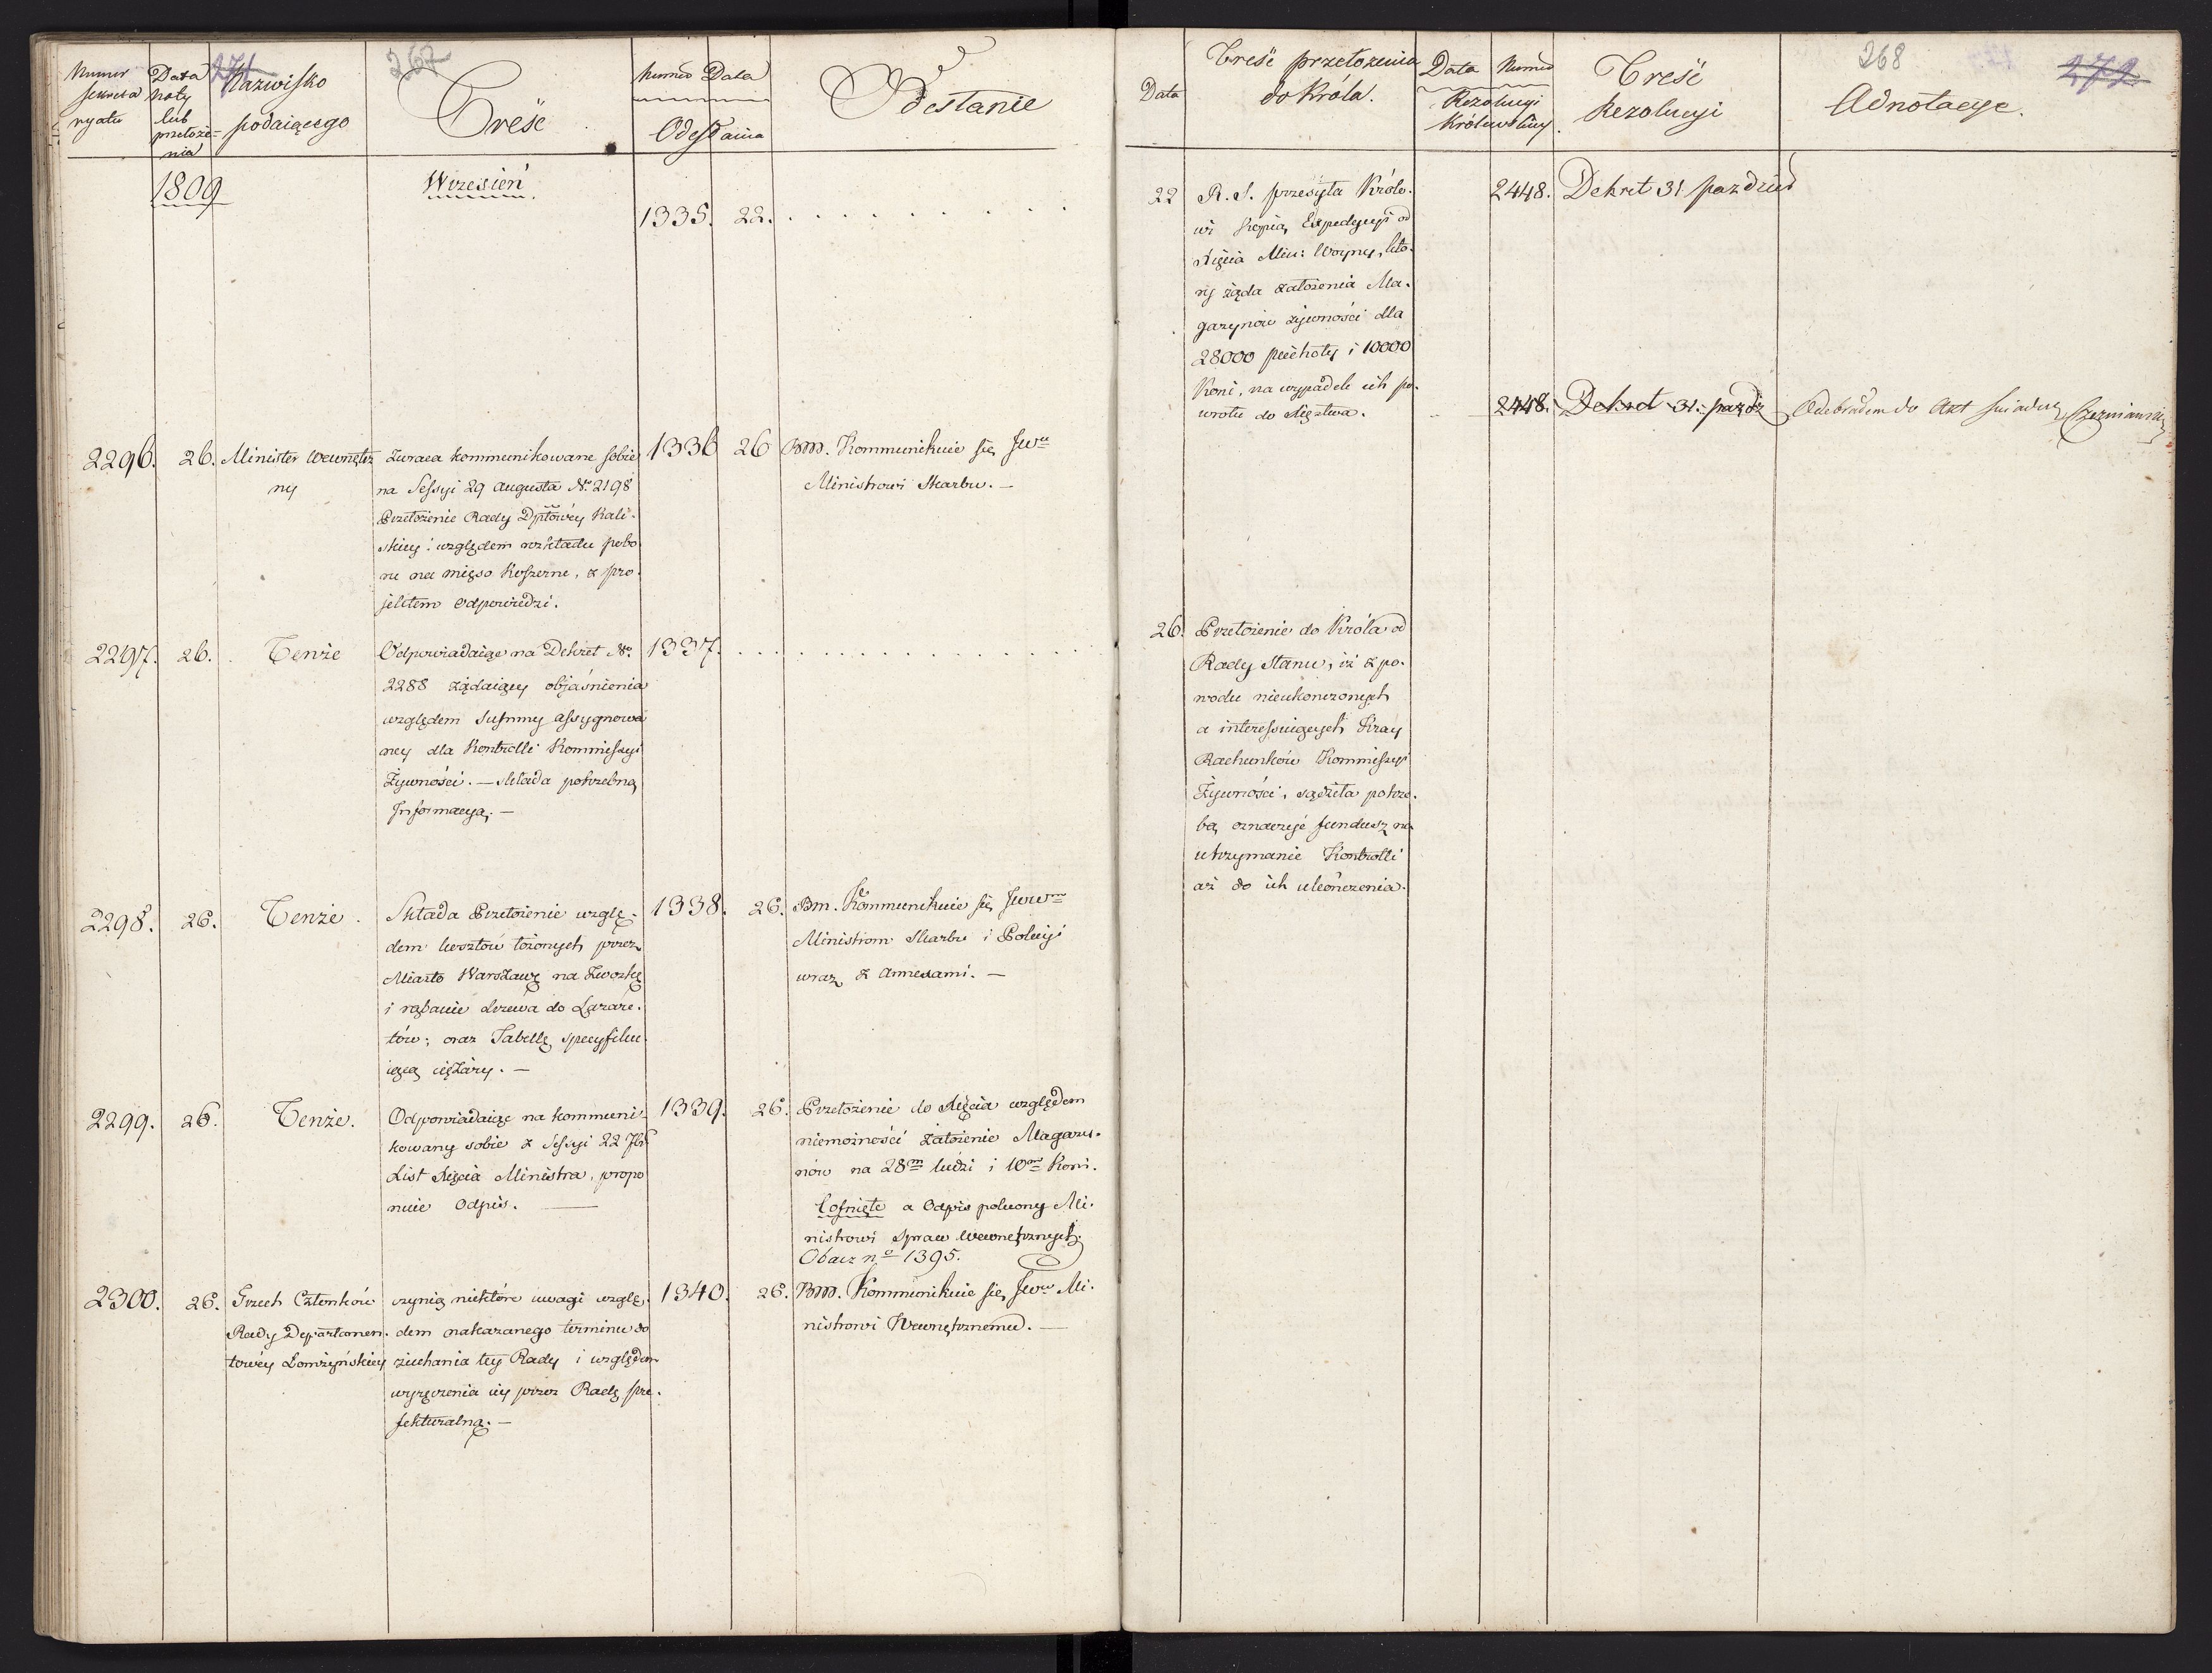 267
271
Numer
sekreta
ryatu
Data
noty
lub
przełoże=
nia
Nazwisko
podaiącego
Treść
Numer Data
Odesłania
Odesłanie
1809
Wrzesień
1335. 22. . . . . . . . . . .
2296. 26. Minister Wewnętrz
ny
zwraca kommunikowane sobie
na Sessyi 29 Augusta No. 2198
Przełożenie Rady Dptowéy Kali-
skiey: względem rozkładu pobo
ru na mięso koszerne, z pro-
jektem odpowiedzi.
1336 26 Bm. Kommunikuie się Jwu
Ministrowi Skarbu. —
2297. 26. Tenże
Odpowiadaiąc na Dekret No.
2288 żądaiący objaśnienia
względem Summy assygnowa
ney dla Kontrolli Kommissyi
Żywności. — składa potrzebną
Informacyą. —
1337. . . . . . . . . . . . . . .
2298. 26. Tenże.
Składa Przełożenie wzglę-
dem kosztów łożonych przez
Miasto Warszawę na zwózkę
i rąbanie drzewa do Lazare-
tów; oraz Tabellę specyfiku
iącą ciężary. —
1338. 26. Bm. Kommunikuie się Jww
Ministrom Skarbu i Policyi
wraz z Annexami. —
2299. 26. Tenże.
Odpowiadaiąc na kommuni-
kowany sobie z Sessyi 22 7br
List Xięcia Ministra, propo
nuie odpis. —
1339. 26. Przełożenie do Xięcia względem
niemożności założenie Magazy-
nów na 28m ludzi i 10m Koni.
Cofnięte a Odpis polecony Mi-
nistrowi Spraw Wewnętrznych.
Obacz no 1395.
2300. 26. Trzech Członków
Rady Departamen-
towéy Łomżyńskiey
czynią niektóre uwagi wzglę-
dem nakazanego terminu do
ziechania tey Rady i względem
wyręczenia iey przez Radę pre-
fekturalną. —
1340. 26. Bm. Kommunikuie się Jwu Mi-
nistrowi Wewnętrznemu. —
268
272
Data
Treść przełożenia
do Króla.
Data Numer
Rezolucyi
Królewskiey
Treść
Rezolucyi
Adnotacye.
22 R. S. przesyła Królo-
wi kopią Expedycyi od
Xięcia Min: Woyny, któ-
ry żąda założenia Ma-
gazynów żywności dla
28000 piechoty i 10000
Koni, na wypadek ich po-
wrotu do Xięztwa.
2448. Dekret 31 paźdźier
2448. Dekret 31. paźdz Odebrałem do Akt
26. Przełożenie do Króla od
Rady Stanu, iż z po-
wodu nieukończonych
a interessuiących Kray
Rachunków Kommissyi
Żywności, sądziła potrze-
bą oznaczyć fundusz na
utrzymanie Kontrolli
aż do ich ukończenia.